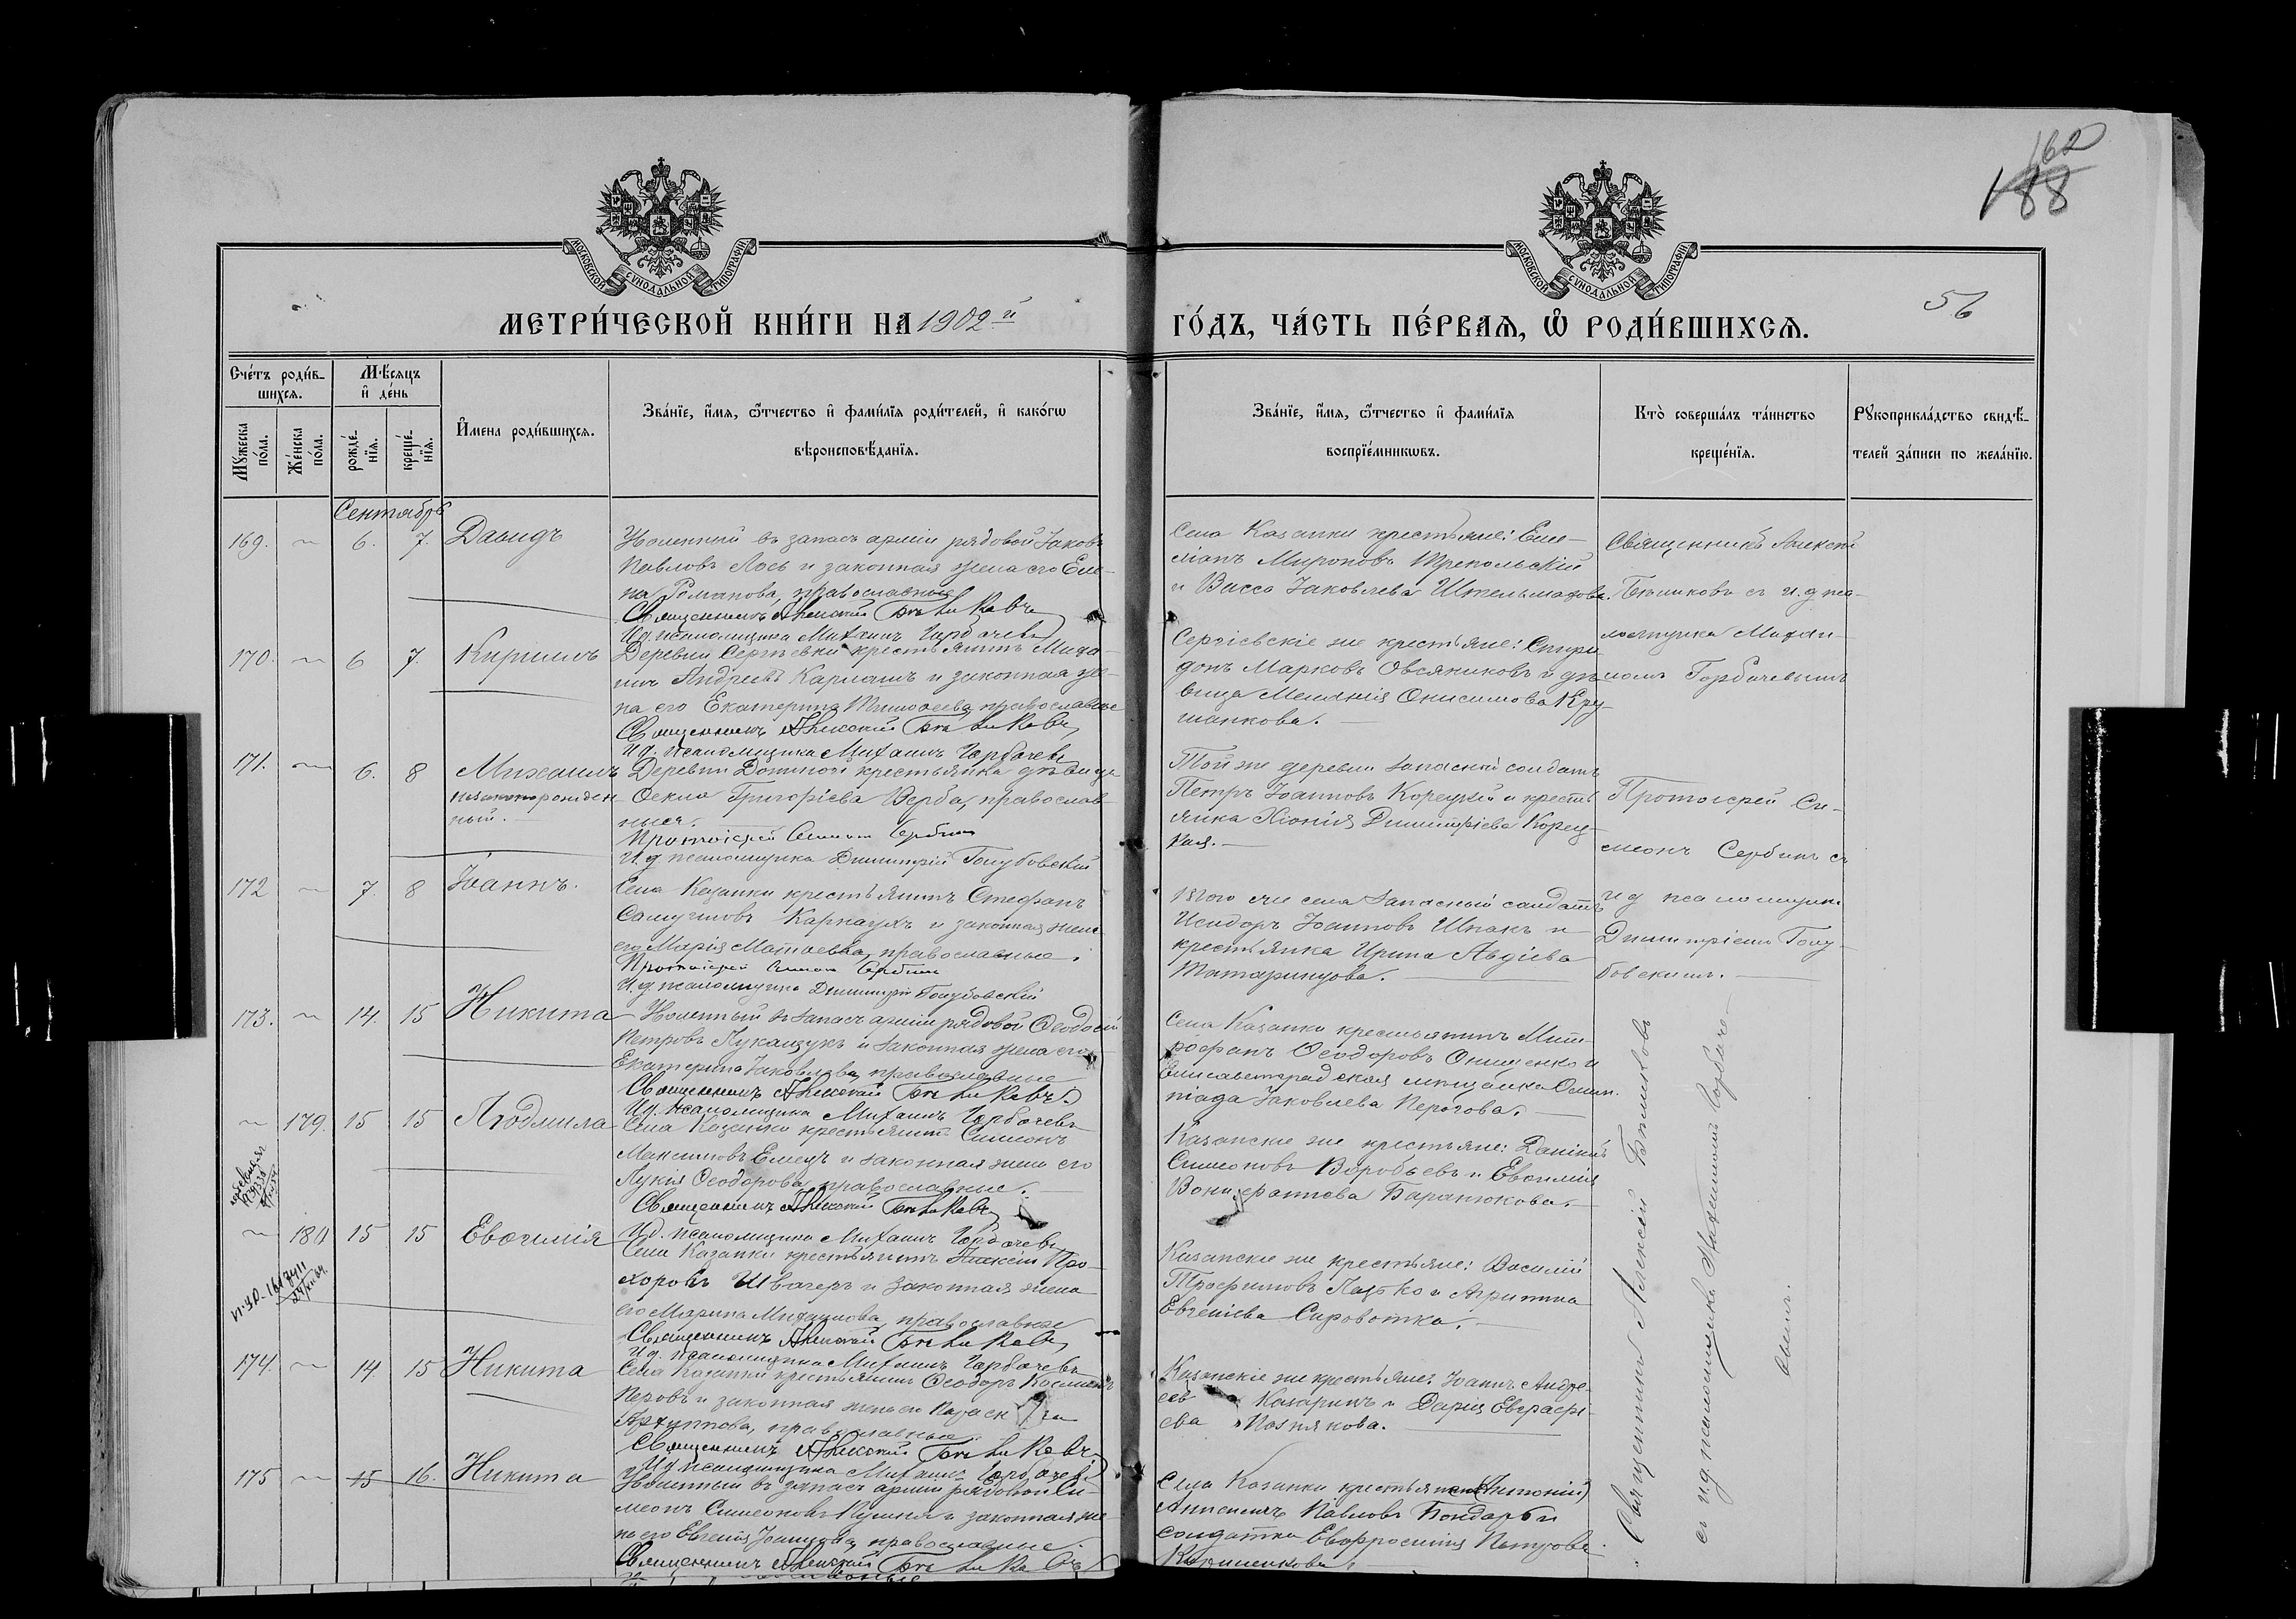 162
188
МОСКОВСКОЙ СУНОДАЛЬНОЙ ТИПОГРАФІИ
МОСКОВСКОЙ СУНОДАЛЬНОЙ ТИПОГРАФІИ
56
МЕТРИ́ЧЕСКОЙ КНИ́ГИ НА 1902й
ГО́ДЪ, ЧА́СТЬ ПЕ́РВАЯ, Ѡ РОДИ́ВШИХСЯ.
Сче́тъ роди́в-
шихся.
Мѣсяцъ
и҆ де́нь
Му́жеска по́ла.
Же́нска по́ла.
рожде́-нїя.
креще́-нїя.
И҆мена роди́вшихся.
Зва́нїе, и҆мя, ѻ҆тчество и҆ фами́лїя роди́телей, и҆ како́гѡ
вѣроисповѣданїя.
Зва́нїе, и҆мя, ѻ҆тчество и҆ фами́лїя
воспрїе́мникѡвъ.
Кто̀ соверша́лъ та́инство
креще́нїя.
Рꙋкоприкла́дство свидѣ-
телей за́писи по жела́нїю.
Сентябрь
169. 6. 7. Давидъ
Уволенный въ запасъ арміи рядовой Іаковъ
Павловъ Лось и законная жена его Еле-
на Романова, православные
Священникъ Алексій Бѣликовъ
И.д. псаломщика Михаилъ Горбачевъ
Села Казанки крестьяне: Еме-
ліанъ Мироновъ Трепольскій
и Васса Іаковлева Штельмахова.
Священникъ Алексій
Бѣликовъ съ и.д. пса-
ломщика Михаи-
ломъ Горбачевымъ
170. 6 7. Кириллъ
Деревни Сергѣевки крестьянинъ Миха-
илъ Андреевъ Карпашъ и законная же-
на его Екатерина Тимоѳеева, православные
Священникъ Алексій Бѣликовъ
И.д. псаломщика Михаилъ Горбачевъ
Сергіевскіе же крестьяне: Спири-
донъ Марковъ Овсяниковъ и дѣ-
вица Меланія Онисимова Кру-
шанкова.
171. 6. 8 Михаилъ
незаконорожден-
ный.
Деревни крестьянка дѣвица
Ѳекла Григоріева Верба, православ-
ныя.
Протоіерей Симеонъ Сербинъ
И.д. псаломщика Димитрій Голубовскій
Той же деревни запасный солдатъ
Петръ Іоанновъ Корецкій и кресть-
янка Хіонія Димитріева Корец-
кая.
Протоіерей Си-
меонъ Сербинъ съ
и.д. псаломщика
Димитріемъ Голу-
бовскимъ.
172 7. 8 Іоаннъ.
Села Казанки крестьянинъ Стефанъ
Самуиловъ Карнаухъ и законная жена
его Марія Матѳеева, православные.
Протоіерей Симеонъ Сербинъ
И.д. псаломщика Димитрій Голубовскій
Того же села запасный солдатъ
Исидоръ Іоанновъ Шпакъ и
крестьянка Ирина Авдіева
Татаринцова.
173. 14. 15 Никита
Уволенный въ запасъ арміи рядовой Ѳеодосій
Петровъ Лукащукъ и законная жена его
Екатерина Іаковлева, православные
Священникъ Алексій Бѣликовъ
И.д. псаломщика Михаилъ Горбачевъ
Села Казанки крестьянинъ Мит-
рофанъ Ѳеодоровъ Онищенко и
Елисаветградская мѣщанка Олим-
піада Іаковлева Перогова.
179. 15 15 Людмила
Села Казанки крестьянинъ Симеонъ
Максимовъ Емецъ и законная жена его
Лукія Ѳеодорова, православные.
Священникъ Алексій Бѣликовъ
И.д. псаломщика Михаилъ Горбачевъ
Казанскіе же крестьяне: Даніилъ
Симеоновъ Воробьевъ и Евѳимія
Вонифатіева Баранюкова.
180 15 15 Евѳимія
Села Казанки крестьянинъ Алексій Про-
хоровъ Швачеръ и законная жена
его Марина Михаилова, православные
Священникъ Алексій Бѣликовъ
И.д. псаломщика Михаилъ Горбачевъ
Казанскіе же крестьяне: Василій
Трофимовъ Лазько и Агрипина
Евгеніева Сыроватка.
174. 14. 15 Никита
Села Казанки крестьянинъ Ѳеодоръ
Перовъ и законная жена его
Архиппова, православные.
Священникъ Алексій Бѣликовъ
И.д. псаломщика Михаилъ Горбачевъ
Казанскіе же крестьяне: Іоаннъ Андре-
евъ Казаринъ и Дарія Евграфі-
ева Познякова.
175 15 16. Никита
Уволенный въ запасъ арміи рядовой Си-
меонъ Симеоновъ и законная же-
на его Евгенія Іоаннова, православные.
Священникъ Алексій Бѣликовъ
Села Казанки крестьянинъ (Антоній)
Павловъ Бондарь и
солдатка Евфросинія Петрова
Священникъ Алексій Бѣликовъ
съ и.д. псаломщика Михаиломъ Горбаче-
вымъ.